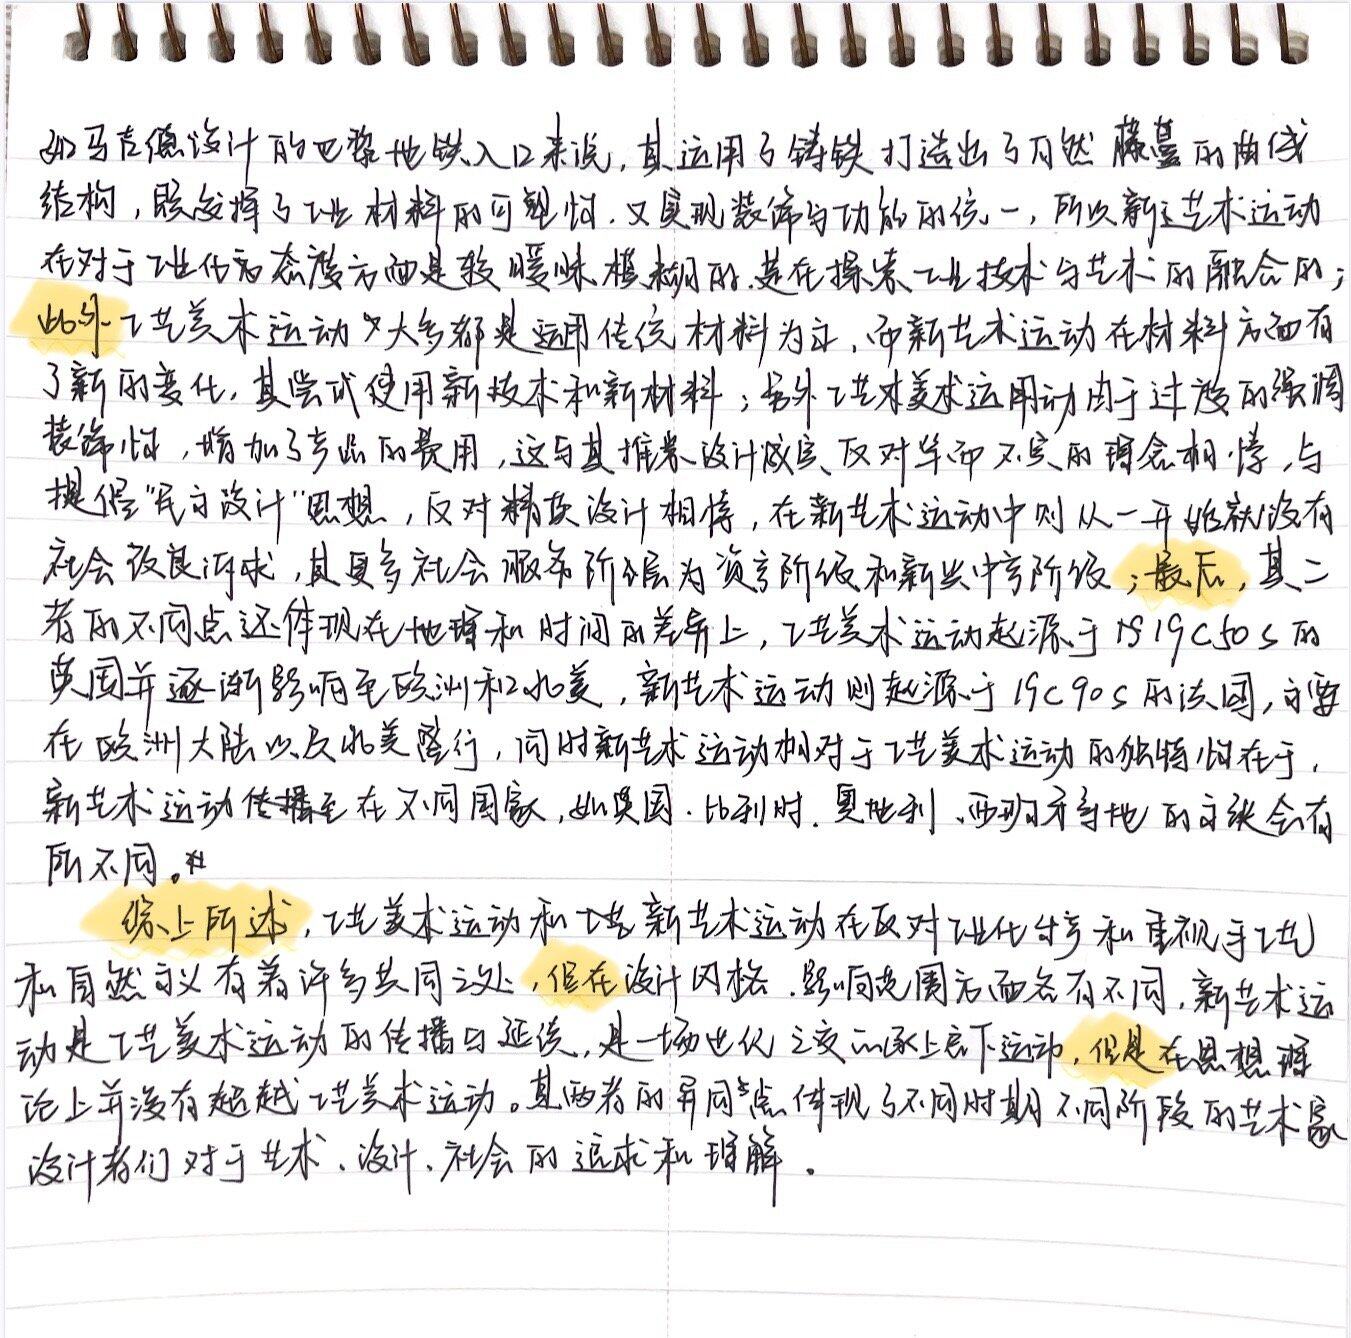 如马克德设计的巴黎地铁入口来说，其运用了铸铁打造出了自然藤蔓的曲线
结构，既发挥了工业材料的可塑性，又实现装饰与功能的统一，所以新艺术运动
在对于工业化的态度方面是较暧昧模糊的，是在探索工业技术与艺术的融合的；
此外工艺美术运动大多都是运用传统材料为主，而新艺术运动在材料方面有
了新的变化，其尝试使用新技术和新材料；另外工艺美术运动由于过度的强调
装饰性，增加了产品的费用，这与其推崇设计诚实、反对华而不实的理念相悖，与
提倡“民主设计”思想，反对精英设计相悖，在新艺术运动中则从一开始就没有
社会改良诉求，其更多社会服务阶层为资产阶级和新兴中产阶级；最后，其二
者的不同点还体现在地理和时间的差异上，工艺美术运动起源于19C50s的
英国并逐渐影响至欧洲和北美，新艺术运动则起源于19C90s的法国，主要
在欧洲大陆以及北美盛行，同时新艺术运动相对于工艺美术运动的独特性在于，
新艺术运动传播至在不同国家，如英国、比利时、奥地利、西班牙等地的主张会有
所不同。
综上所述，工艺美术运动和工艺新艺术运动在反对工业化生产和重视手工艺
和自然主义有着许多共同之处，但在设计风格、影响范围方面各有不同，新艺术运
动是工艺美术运动的传播与延续，是一场世纪之交的承上启下运动，但是在思想理
论上并没有超越工艺美术运动。其两者的异同点体现了不同时期不同阶段的艺术家
设计者们对于艺术、设计、社会的追求和理解。